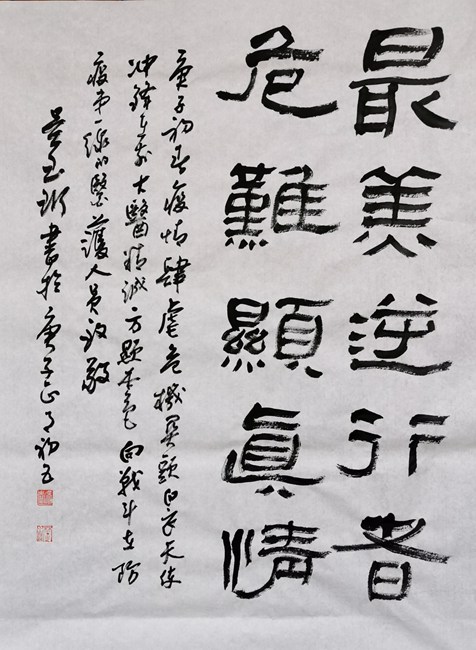 最美逆行者
危難顯真情
庚子初春疫情肆虐危機關頭白衣天使
冲鋒在前大醫精誠方顯本色向戰斗在防
疫第一線的醫護人員致敬
玉衍書於庚子正月初五